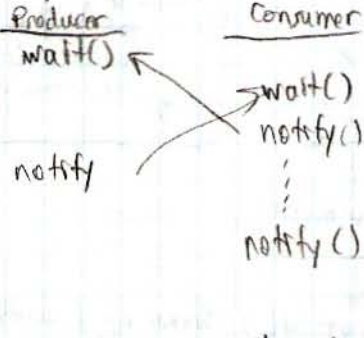 Producer
wait()
notify
Consumer
wait()
notify()
notify()